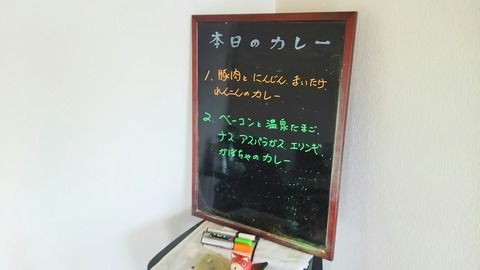 本日のカレー
1. 豚肉と にんじん、まいたけ、
れんこんのカレー
2. ベーコンと温泉たまご、
ナス、アスパラガス、エリンギ、
かぼちゃのカレー